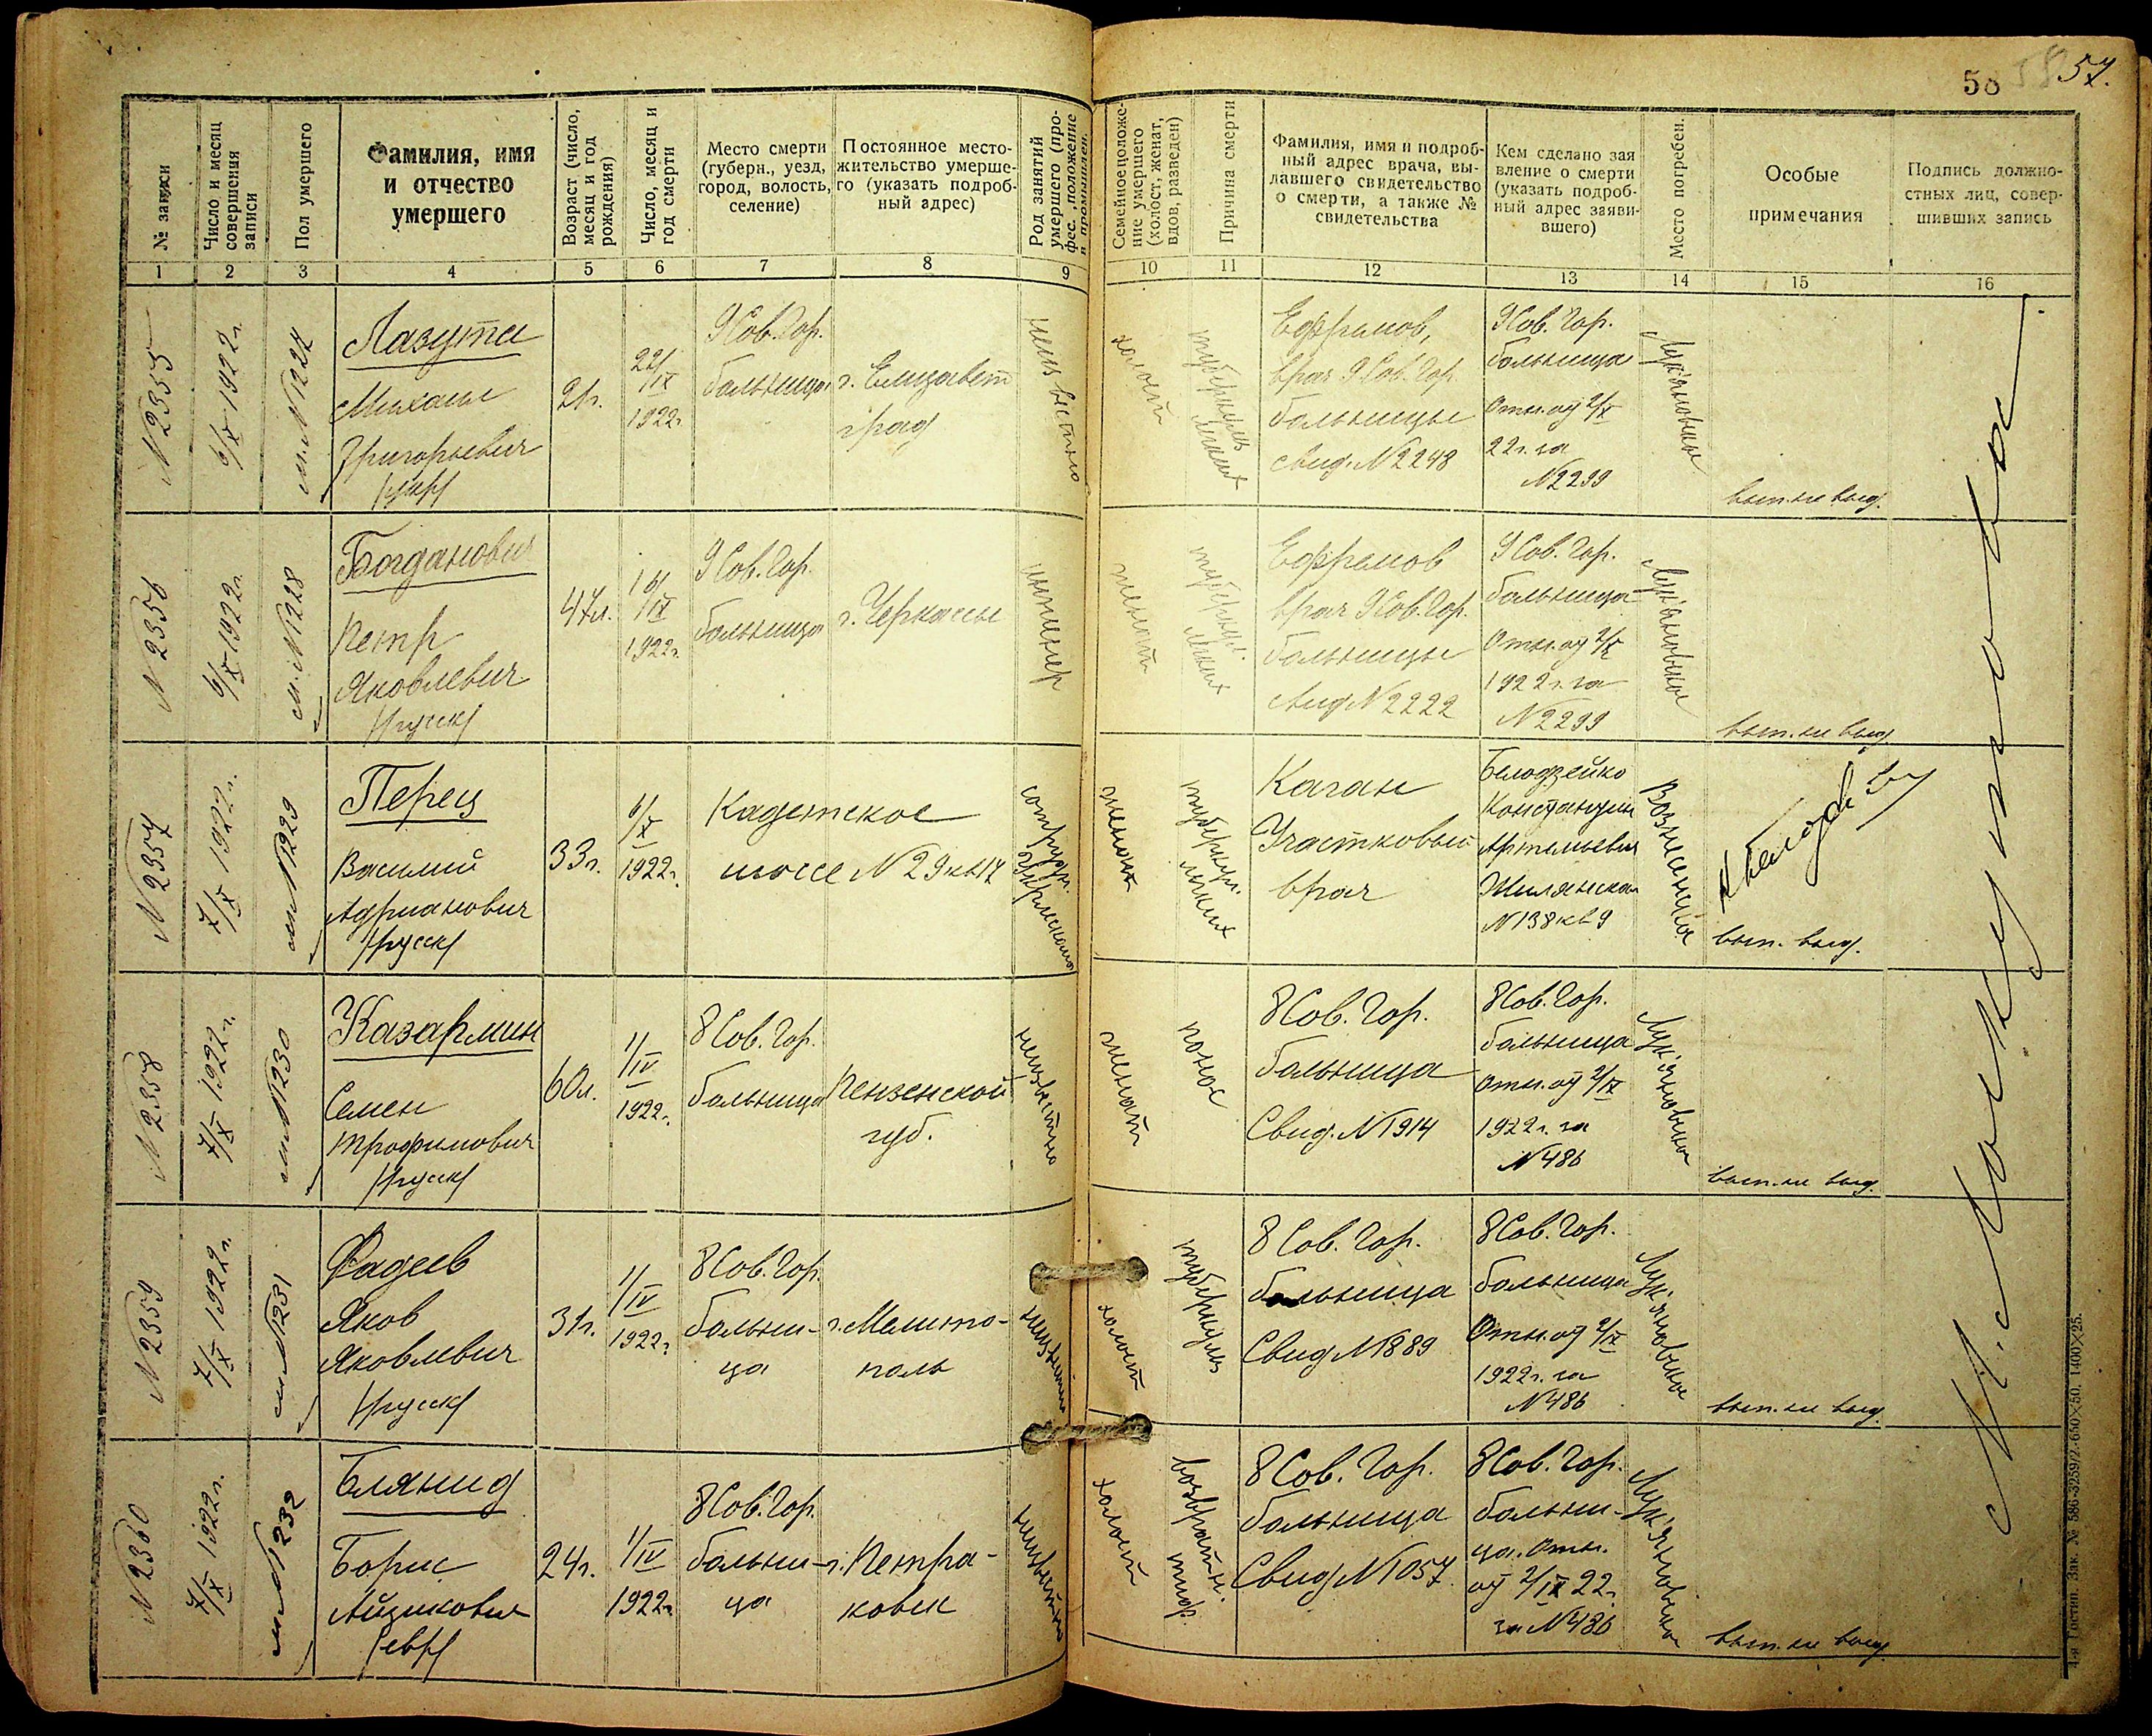 58 57.
№ записи
Число и месяц
совершения
записи
Пол умершего
Фамилия, имя
и отчество
умершего
Возраст (число,
месяц и год
рождения)
Число, месяц и
год смерти
Место смерти
(губерн., уезд,
город, волость,
селение)
Постоянное место-
жительство умерше-
го (указать подроб-
ный адрес)
Род занятий
умершего (про-
фес., положение
в промышлен.
Семейное положе-
ние умершего
(холост, женат,
вдов, разведен)
Причина смерти
Фамилия, имя и подроб-
ный адрес врача, вы-
давшего свидетельство
о смерти, а также №
свидетельства
Кем сделано зая
вление о смерти
(указать подроб-
ный адрес заяви-
вшего)
Место погребен.
Особые
примечания
Подпись должно-
стных лиц, совер-
шивших запись
1 2 3 4 5 6 7 8 9 10 11 12 13 14 15 16
N 2355
6/X 1922 г.
м. N 1227
Лазута
Михаил
Григорьевич
/укр/
21г.
22/IX
1922г.
9 Сов. Гор.
больница
г. Елизавет
град
неизвестно
холост
туберкулез
легких
Ефрамов,
врач 9 Сов. Гор.
больницы
свид. N 2248
9 Сов. Гор.
больница
Отн. от 2/X
22 г. за
N 2299
Лук'яновское
вып. не выд.
N 2356
6/X 1922 г.
м. N 1228
Богданович
Петр
Яковлевич
/русск/
47 л.
16/IX
1922 г.
9 Сов. Гор.
больница
г. Черкассы
инженер
женат
туберкул.
легких
Ефрамов
врач 9 Сов. Гор.
больницы
Свид N 2222
9 Сов. Гор.
больница
Отн. от 2/X
1922 г. за
N 2299
Лук'яновское
вып. не выд.
N 2357
7/X 1922 г.
м N 1229
Перец
Василий
Адрианович
/русск/
33 г.
6/X
1922 г.
Кадетское
шоссе N 29 кв 17
сотрудн.
женат
туберкул.
легких
Каган
Участковый
врач
Константин
Артемьевич
Жилянская
N 138 кв 9
вып. выд.
N 2358
7/X 1922 г.
м N 1230
Казармин
Семен
Трофимович
/русск/
60 л.
1/IV
1922 г.
8 Сов. Гор.
больница
Пензенской
губ.
неизвестно
женат
понос
8 Сов. Гор.
больница
Свид. N 1914
8 Сов. Гор.
больница
Отн. от 2/IX
1922 г. за
N 486
Лук'яновское
вып. не выд.
N 2359
7/X 1922 г.
м N 1231
Фадеев
Яков
Яковлевич
/русск/
31 г.
1/IV
1922 г.
8 Сов. Гор.
больни-
ца
г. Мелито-
поль
неизвестно
холост
туберкулез
8 Сов. Гор.
больница
Свид N 1889
8 Сов. Гор.
больница
Отн. от 2/IX
1922 г. за
N 486
Лук'яновское
вып. не выд.
N 2360
7/X 1922 г.
м N 1232
Блянид
Борис
Айзикович
/евр/
24 г.
1/IV
1922 г.
8 Сов. Гор.
больни-
ца
г. Петра-
ковск
неизвестно
холост
возвратн.
тиф
8 Сов. Гор.
больница
Свид N 1057.
8 Сов. Гор.
больни-
ца. Отн.
от 2/IX 22 г.
за N 486
Лук'яновское
вып. не выд.